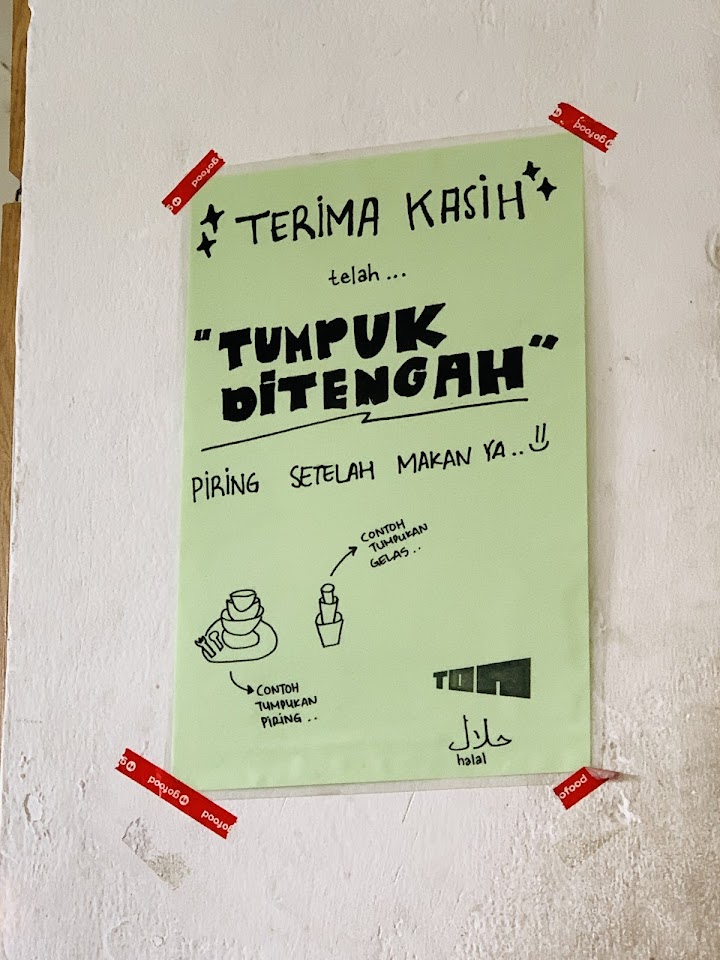 TERIMA KASIH
telah...
"TUMPUK
DITENGAH"
PIRING SETELAH MAKAN YA..
CONTOH
TUMPUKAN
GELAS..
CONTOH
TUMPUKAN
PIRING..
TOA
حلال
halal
gofood
gofood
gofood
gofood
gofood
gofood